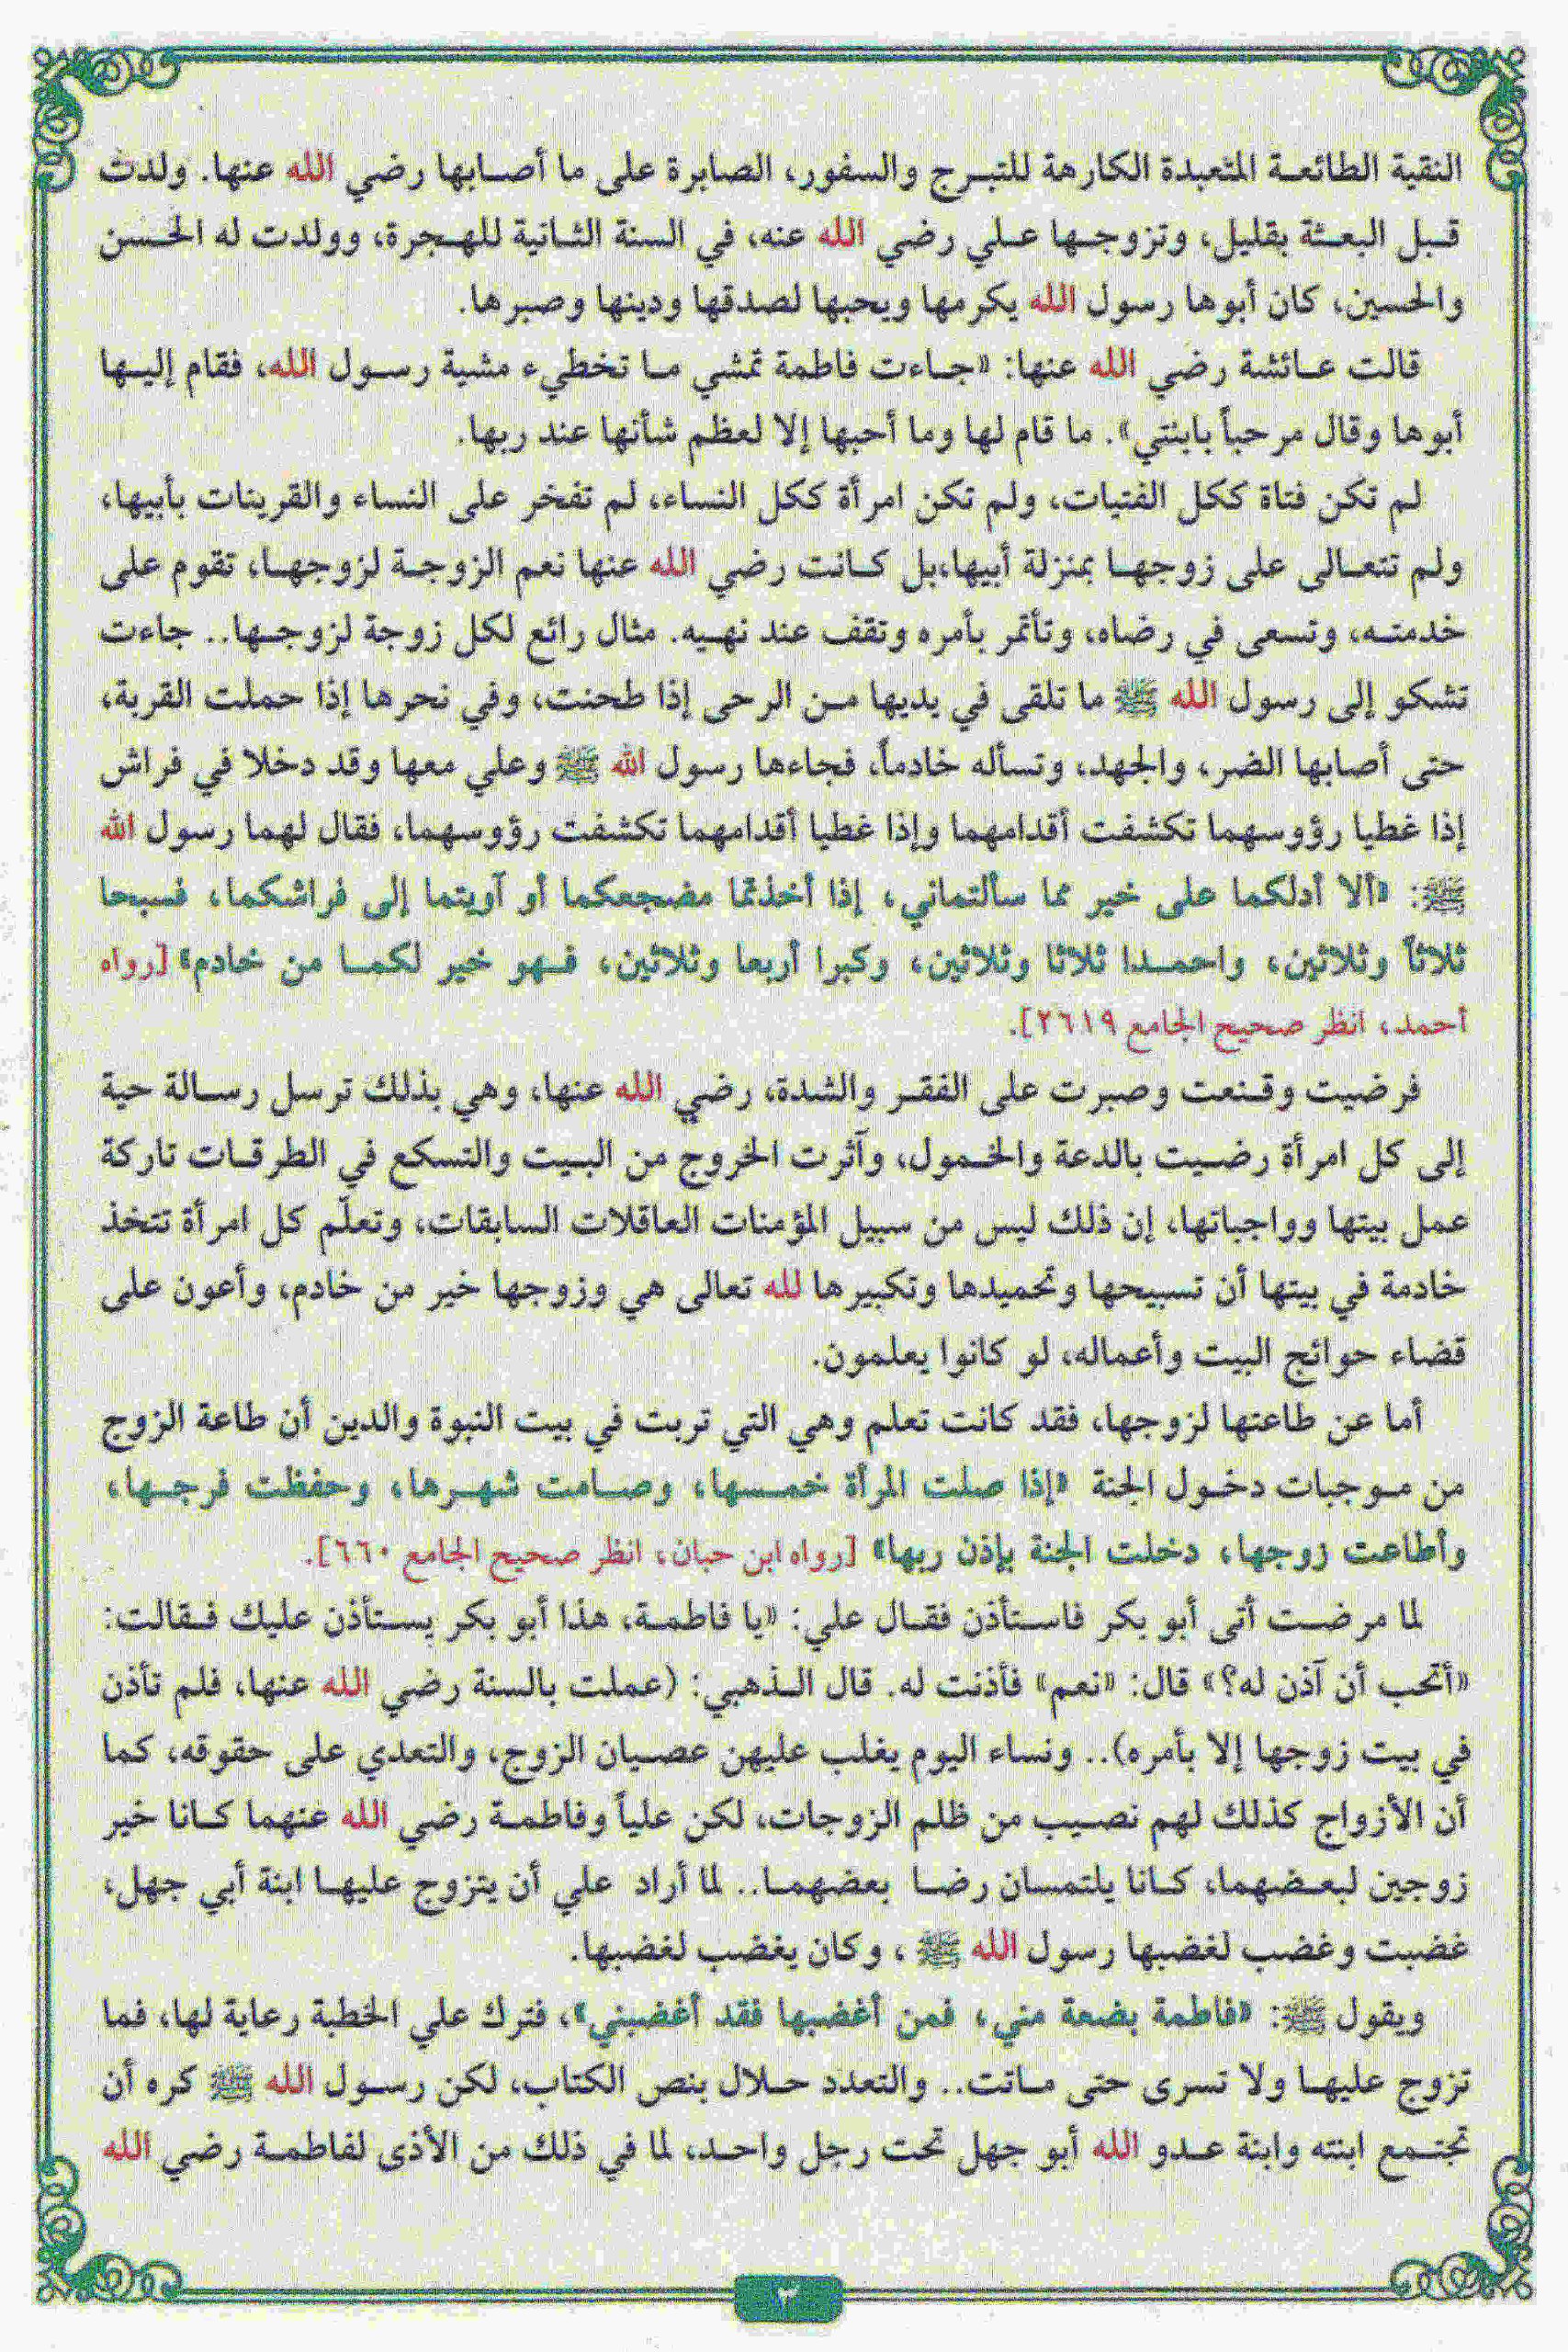 النقية الطائعة المتعبدة الكارهة للتبرج والسفور، الصابرة على ما أصابها رضي الله عنها. ولدت
قبل البعثة بقليل، وتزوجها علي رضي الله عنه، في السنة الثانية للهجرة، وولدت له الحسن
والحسين، كان أبوها رسول الله يكرمها ويحبها لصدقها ودينها وصبرها.
قالت عائشة رضي الله عنها: «جاءت فاطمة تمشي ما تخطيء مشية رسول الله، فقام إليها
أبوها وقال مرحباً بابنتي». ما قام لها وما أحبها إلا لعظم شأنها عند ربها.
لم تكن فتاة ككل الفتيات، ولم تكن امرأة ككل النساء، لم تفخر على النساء والقرينات بأبيها،
ولم تتعالى على زوجها بمنزلة أبيها،بل كانت رضي الله عنها نعم الزوجة لزوجها، تقوم على
خدمته، وتسعى في رضاه، وتأتمر بأمره وتقف عند نهيه. مثال رائع لكل زوجة لزوجها.. جاءت
تشكو إلى رسول الله ﷺ ما تلقى في يديها من الرحى إذا طحنت، وفي نحرها إذا حملت القربة،
حتى أصابها الضر، والجهد، وتسأله خادماً، فجاءها رسول الله ﷺ وعلي معها وقد دخلا في فراش
إذا غطيا رؤوسهما تكشفت أقدامهما وإذا غطيا أقدامهما تكشفت رؤوسهما، فقال لهما رسول الله
ﷺ: «ألا أدلكما على خير مما سألتماني، إذا أخذتما مضجعكما أو آويتما إلى فراشكما، فسبحا
ثلاثاً وثلاثين، واحمدا ثلاثا وثلاثين، وكبرا أربعا وثلاثين، فهو خير لكما من خادم» [رواه
أحمد، انظر صحيح الجامع ٢٦١٩].
فرضيت وقنعت وصبرت على الفقر والشدة، رضي الله عنها، وهي بذلك ترسل رسالة حية
إلى كل امرأة رضيت بالدعة والخمول، وآثرت الخروج من البيت والتسكع في الطرقات تاركة
عمل بيتها وواجباتها، إن ذلك ليس من سبيل المؤمنات العاقلات السابقات، وتعلّم كل امرأة تتخذ
خادمة في بيتها أن تسبيحها وتحميدها وتكبيرها لله تعالى هي وزوجها خير من خادم، وأعون على
قضاء حوائج البيت وأعماله، لو كانوا يعلمون.
أما عن طاعتها لزوجها، فقد كانت تعلم وهي التي تربت في بيت النبوة والدين أن طاعة الزوج
من موجبات دخول الجنة «إذا صلت المرأة خمسها، وصامت شهرها، وحفظت فرجها،
وأطاعت زوجها، دخلت الجنة بإذن ربها» [رواه ابن حبان، انظر صحيح الجامع ٦٦٠].
لما مرضت أتى أبو بكر فاستأذن فقال علي: «يا فاطمة، هذا أبو بكر يستأذن عليك فقالت:
«أتحب أن آذن له؟» قال: «نعم» فأذنت له. قال الذهبي: (عملت بالسنة رضي الله عنها، فلم تأذن
في بيت زوجها إلا بأمره).. ونساء اليوم يغلب عليهن عصيان الزوج، والتعدي على حقوقه، كما
أن الأزواج كذلك لهم نصيب من ظلم الزوجات، لكن علياً وفاطمة رضي الله عنهما كانا خير
زوجين لبعضهما، كانا يلتمسان رضا بعضهما.. لما أراد علي أن يتزوج عليها ابنة أبي جهل،
غضبت وغضب لغضبها رسول الله ﷺ ، وكان يغضب لغضبها.
ويقول ﷺ: «فاطمة بضعة مني، فمن أغضبها فقد أغضبني»، فترك علي الخطبة رعاية لها، فما
تزوج عليها ولا تسرى حتى ماتت.. والتعدد حلال بنص الكتاب، لكن رسول الله ﷺ كره أن
تجتمع ابنته وابنة عدو الله أبو جهل تحت رجل واحد، لما في ذلك من الأذى لفاطمة رضي الله
٣